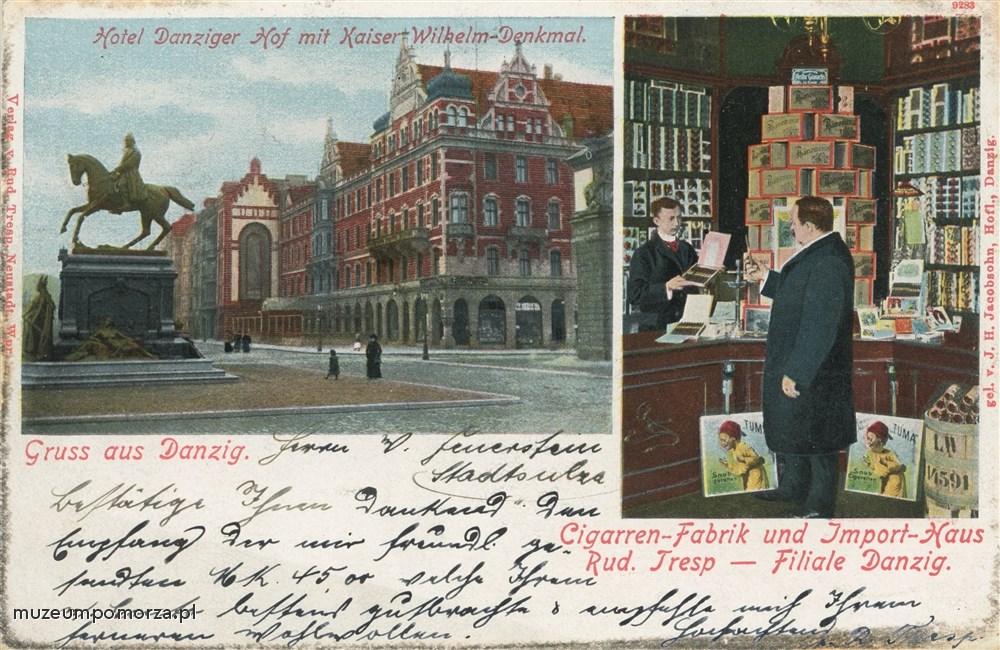 9283
Hotel Danziger Hof mit Kaiser-Wilhelm-Denkmal.
Verlag v. Rud. Tresp, Neustadt, Wpr.
gel. v. J. H. Jacobsohn, Hofl., Danzig.
TUMA
Snob
Cigaretten
TUMA
Snob
Cigaretten
LW
14591
Gruss aus Danzig.
Cigarren-Fabrik und Import-Haus
Rud. Tresp — Filiale Danzig.
Herrn V. Feuerstein
Stadtsulza
Bestätige Ihnen dankend den
Empfang der mir freundl. ge-
sandten Mk. 45 welche Ihrem
bestens gutbrachte & empfehle mich Ihrem
ferneren Wohlwollen.
Hochachtend
R. Tresp
muzeumpomorza.pl